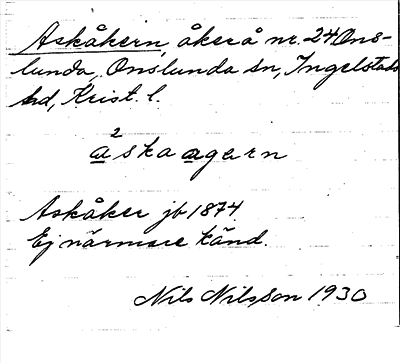 Askåkern, åker å nr. 24 Ons-
lunda, Onslunda sn, Ingelstads
hd, Krist. l.
2
a skaagarn
Askåker jb 1874
Ej närmare känd.
Nils Nilsson 1930